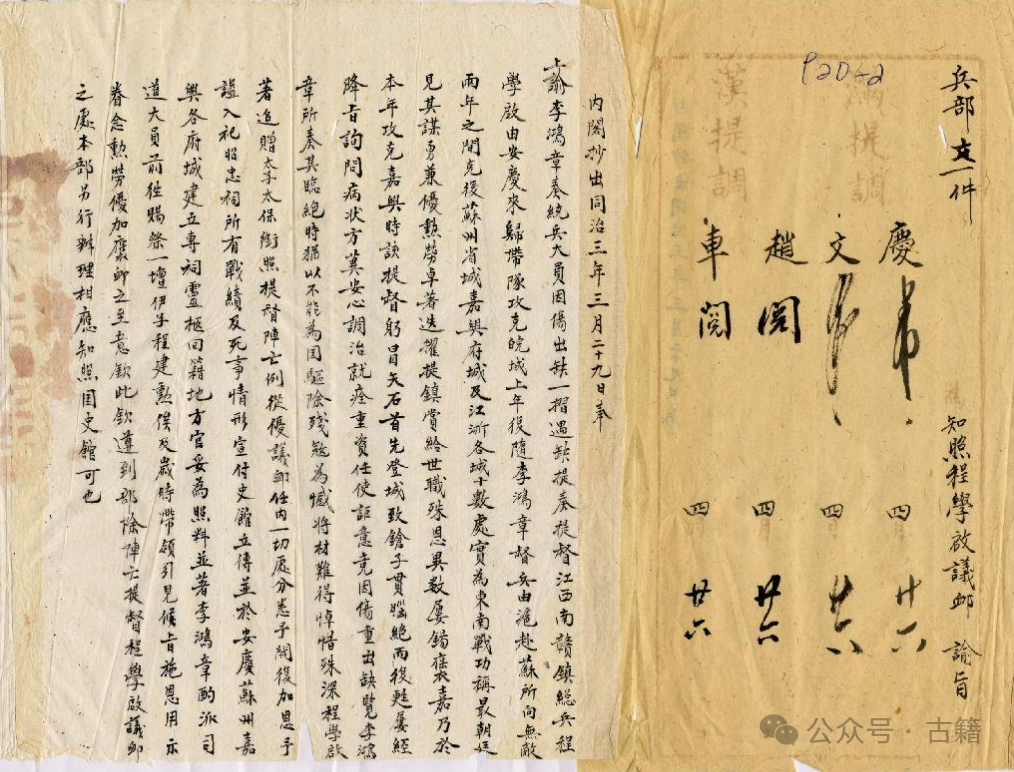 兵部文一件
知照程學啟議卹 諭旨
滿提調
漢提調
慶
四月廿六
文
四 廿六
趙閱
四月廿六
車閱
四 廿六
內閣抄出同治三年三月二十九日奉
上諭李鴻章奏統兵大員因傷出缺一摺遇缺提奏提督江西南贛鎮總兵程
學啟由安慶來歸帶隊攻克皖城上年復隨李鴻章督兵由滬赴蘇所向無敵
兩年之間克復蘇州省城嘉興府城及江浙各城十數處實為東南戰功稱最朝廷
見其謀勇兼優勲勞卓著迭擢提鎮賞給世職殊恩異數屢錫褒嘉乃於
本年攻克嘉興時該提督躬冒矢石首先登城致鎗子貫腦絕而復甦屢經
降旨詢問病狀方冀安心調治就痊重資任使詎意竟因傷重出缺覽李鴻
章所奏其臨絕時猶以不能為國驅除殘寇為憾將材難得悼惜殊深程學啟
著追贈太子太保銜照提督陣亡例從優議卹任內一切處分悉予開復加恩予
諡入祀昭忠祠所有戰績及死事情形宣付史館立傳並於安慶蘇州嘉
興各府城建立專祠靈柩回籍地方官妥為照料並著李鴻章酌派司
道大員前往賜祭一壇伊子程建勲俟及歲時帶領引見候旨施恩用示
眷念勲勞優加褒卹之至意欽此欽遵到部除陣亡提督程學啟議卹
之處本部另行辦理相應知照國史館可也
公众号·古籍